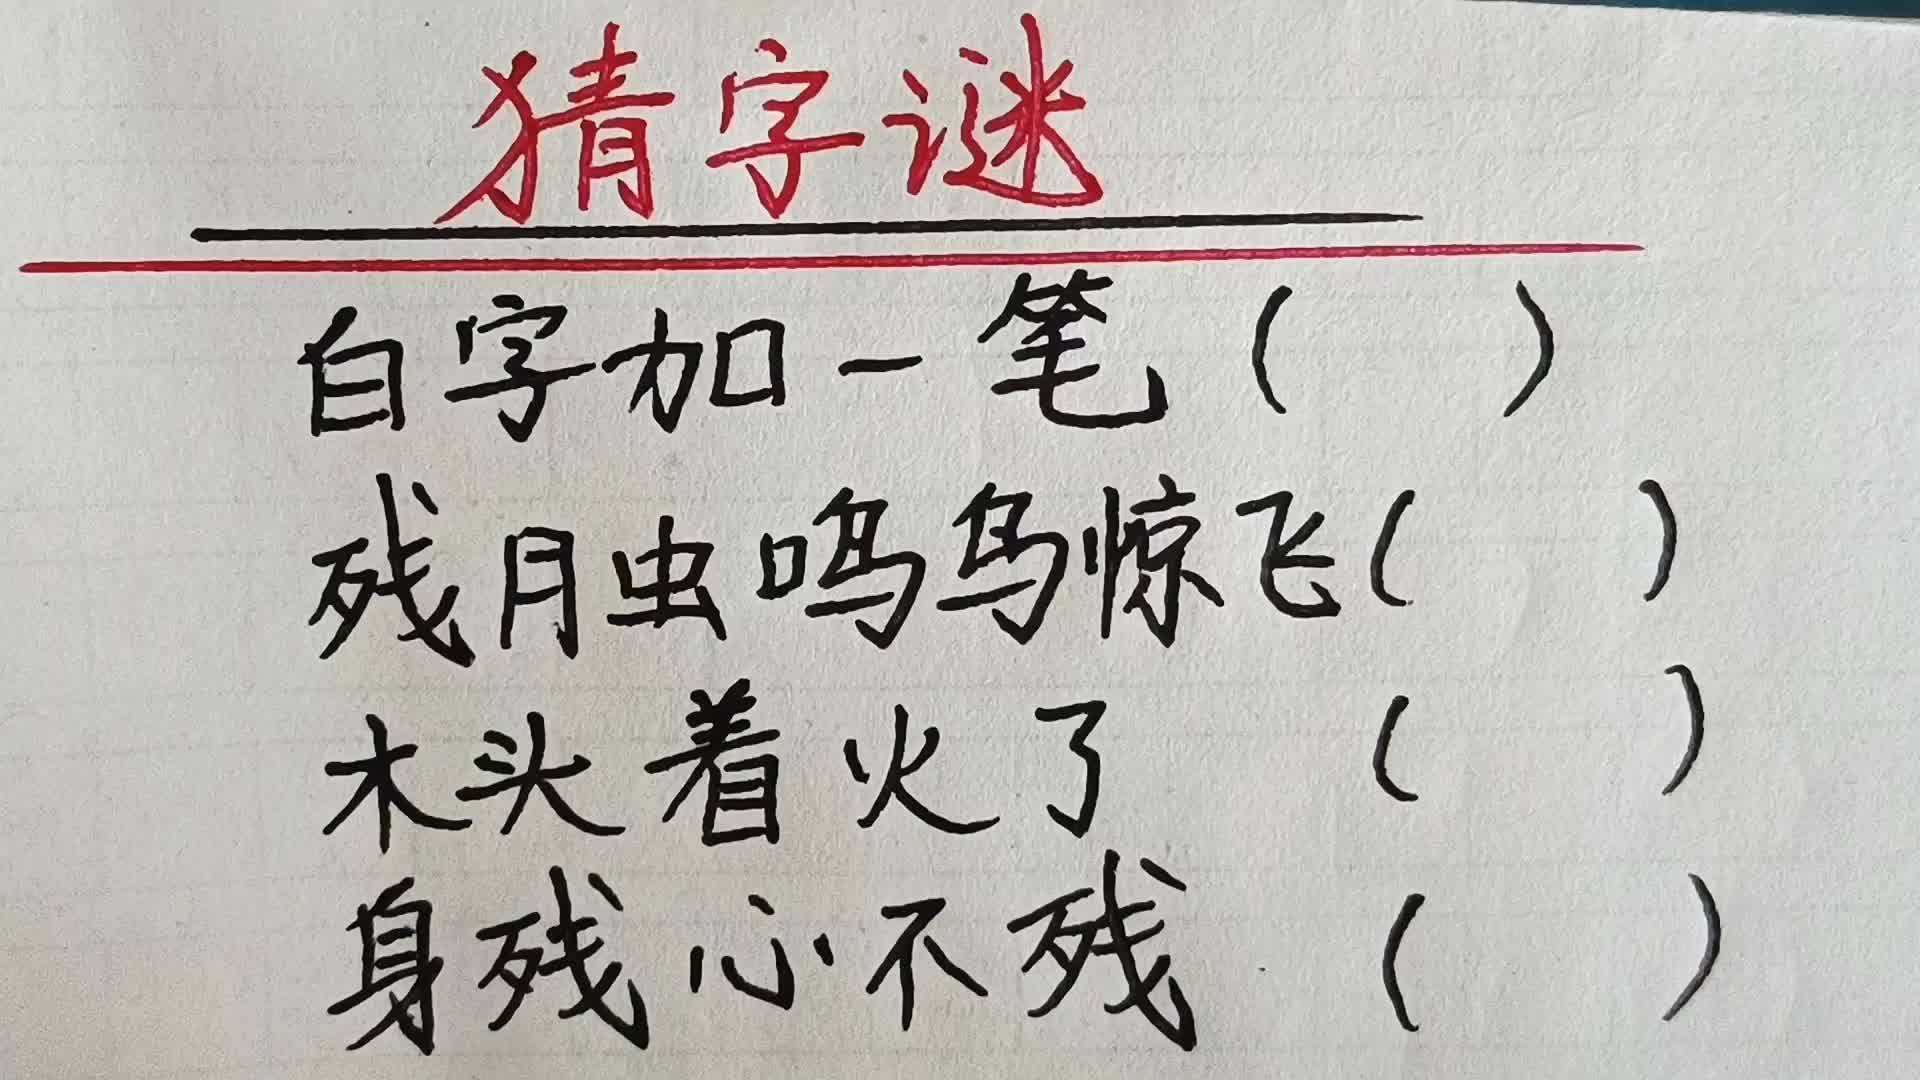 猜字谜
白字加一笔（ ）
残月虫鸣鸟惊飞（ ）
木头着火了（ ）
身残心不残（ ）